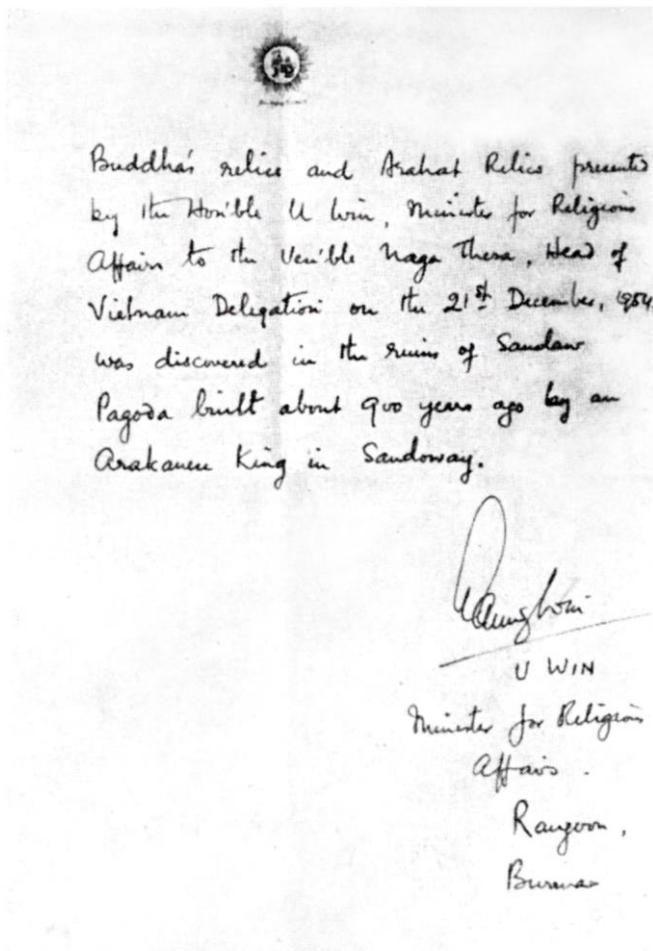 Buddha's relics and Arahat Relics presented
by the Hon'ble U Win, Minister for Religious
Affairs to the Ven'ble Naga Thera, Head of
Vietnam Delegation on the 21st December, 1954,
was discovered in the ruins of Sandaw
Pagoda built about 900 years ago by an
Arakanese King in Sandoway.
U WIN
Minister for Religious
Affairs.
Rangoon,
Burma